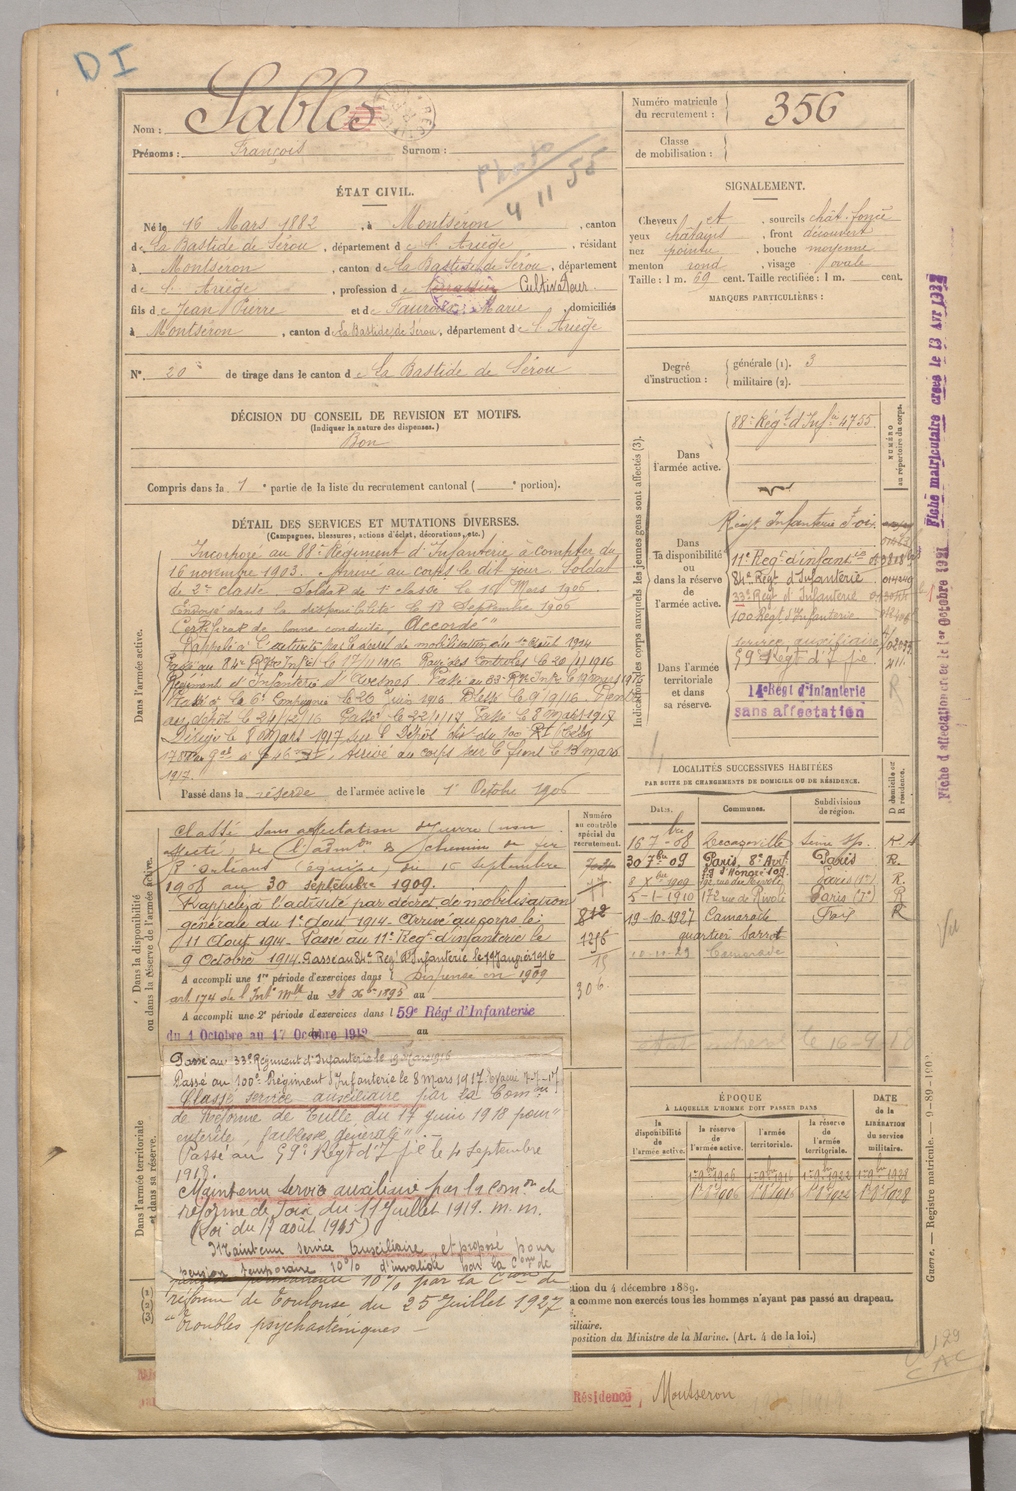 DI
Nom : Sables
Prénoms : François Surnom :
Photo
4 11 55
Numéro matricule du recrutement : 356
Classe de mobilisation :
ÉTAT CIVIL.
Né le 16 Mars 1882, à Montséron, canton
de La Bastide de Sérou, département de l'Ariège, résidant
à Montseron, canton de La Bastide de Sérou, département
de l'Ariège, profession de Cultivateur
fils de Jean Pierre et de Marie, domiciliés
à Montseron, canton de La Bastide de Sérou, département de l'Ariège
N° 20 de tirage dans le canton de La Bastide de Sérou
DÉCISION DU CONSEIL DE REVISION ET MOTIFS.
(Indiquer la nature des dispenses.)
Bon
Compris dans la 1e partie de la liste du recrutement cantonal ( e portion).
SIGNALEMENT.
Cheveux et, sourcils chât. foncé
yeux châtains, front découvert
nez pointu, bouche moyenne
menton rond, visage ovale
Taille : 1 m. 69 cent. Taille rectifiée : 1 m. cent.
MARQUES PARTICULIÈRES :
Degré d'instruction : générale (1). 3
militaire (2).
DÉTAIL DES SERVICES ET MUTATIONS DIVERSES.
(Campagnes, blessures, actions d'éclat, décorations, etc.)
Dans l'armée active.
Incorporé au 88e Régiment d'Infanterie à compter du
16 novembre 1903. Arrivé au corps le dit jour. Soldat
de 2e classe. Soldat de 1e classe le 10 Mars 1906
Envoyé dans la disponibilité le 18 Septembre 1906
Certificat de bonne conduite "Accordé"
Rappelé à l'activité par décret de mobilisation du 1er Août 1914
Passé au 84e Rgt Infie le 17/1/1916. Rayé des contrôles le 20/1/1916
Régiment d'Infanterie d'Avesnes. Passé au 33e Rgt Infie le 19 mars 1916
Passé à la 6e Compagnie le 26 Juin 1916. Blessé le 9/9/16.
Passé le 22/1/17. Passé le 8 mars 1917
Dirigé le 8 mars 1917 sur le Dépôt du 100 RI
Arrivé au corps sur le front le 13 mars
1917.
Passé dans la réserve de l'armée active le 1er Octobre 1906
Indication des corps auxquels les jeunes gens sont affectés (3).
NUMÉRO au répertoire du corps.
Dans l'armée active.
88e Régt d'Infie 4755
Dans la disponibilité ou dans la réserve de l'armée active.
Régt Infanterie Foix
11e Régt d'infantie
84e Régt d'Infanterie
33e Régt d'Infanterie
100 Régt d'Infanterie
service auxiliaire
Dans l'armée territoriale et dans sa réserve.
59e Régt d'I
14e Régt d'Infanterie
sans affectation
Fiche matriculaire créée le 13 Avr 1932
Fiche d'affectation créée le 1er Octobre 1921
LOCALITÉS SUCCESSIVES HABITÉES
PAR SUITE DE CHANGEMENTS DE DOMICILE OU DE RÉSIDENCE.
Dates. Communes. Subdivisions de région. D domicile ou R résidence.
16 7bre 08 Decazeville
30 7bre 09 Paris. 8e Arrt Paris R.
8 Xbre 1909 Paris (1er) R.
5-1-1910 172 rue de Rivoli Paris R
19-10-1927 Camarade Foix R
quartier Sarrot
10-11-29 Camarade
Dans la disponibilité ou dans la réserve de l'armée active.
Numéro au contrôle spécial du recrutement.
812
1215
15
306
Classé sans affectation de guerre (non
affecté) de l'admon du chemin de fer
P. Orléans (équipe), du 15 septembre
1908 au 30 septembre 1909.
Rappelé à l'activité par décret de mobilisation
générale du 1er Aout 1914. Arrivé au corps le
11 Aout 1914. Passé au 11e Régt d'infanterie le
9 Octobre 1914. Passé au 84e Régt d'Infanterie le 17 Janvier 1916
A accompli une 1re période d'exercices dans l Dispensé en 1909
art 174 de l'Inston Mlle du 28 Xbre 1895 au
A accompli une 2e période d'exercices dans l 59e Régt d'Infanterie
du 1 Octobre au 17 Octobre 1912 au
Passé au 33e Régiment d'Infanterie le 19 Mars 1916
Passé au 100e Régiment d'Infanterie le 8 Mars 1917.
Classé service auxiliaire par la Comon
de Réforme de Tulle du 17 juin 1918 pour "
entérite, faiblesse générale" .
Passé au 59e Régt d'Infie le 4 Septembre
1918.
Maintenu service auxiliaire par la Comon de
réforme de Foix du 11 Juillet 1919. m. m.
(Loi du 17 août 1915)
Maintenu service Auxiliaire et proposé pour
pension temporaire 10% d'invalidité par la Con de
permanente 10% par la Con de
réforme de Toulouse du 25 Juillet 1927
"Troubles psychasténiques —
Dans l'armée territoriale et dans sa réserve.
ÉPOQUE
À LAQUELLE L'HOMME DOIT PASSER DANS
la disponibilité de l'armée active. la réserve de l'armée active. l'armée territoriale. la réserve de l'armée territoriale.
DATE de la LIBÉRATION du service militaire.
1er 8bre 1906 1er 8bre 1916 1er 8bre 1922 1er 8bre 1928
tion du 4 décembre 1889.
a comme non exercés tous les hommes n'ayant pas passé au drapeau.
iliaire.
position du Ministre de la Marine. (Art. 4 de la loi.)
Guerre. — Registre matricule.
Vu
Résidence, Montseron